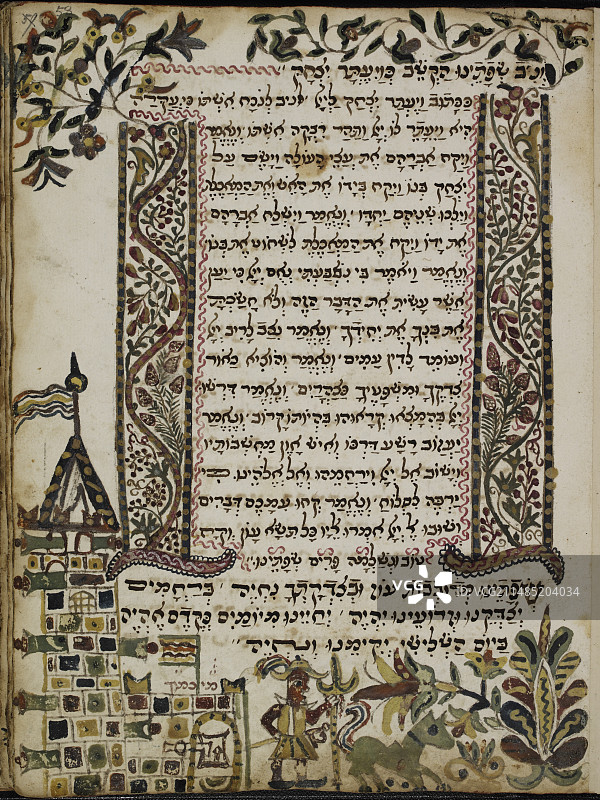 וניב שפתינו הקשב כויעתר יצחק
ככתוב ויעתר יצחק ליי לנכח אשתו כי עקרה
היא ויעתר לו יי ותהר רבקה אשתו ונאמר
ויקח אברהם את עצי העולה וישם על
יצחק בנו ויקח בידו את האש ואת המאכלת
וילכו שניהם יחדו ונאמר וישלח אברהם
את ידו ויקח את המאכלת לשחוט את בנו
ונאמר ויאמר בי נשבעתי נאם יי כי יען
אשר עשית את הדבר הזה ולא חשכתה
את בנך את יחידך ונאמר נצב לריב יי
ועומד לדין עמים ונאמר והוציא כאור
צדקך ומשפטיך כצהרים ונאמר דרשו
יי בהמצאו קראוהו בהיותו קרוב ונאמר
יעזוב רשע דרכו ואיש און מחשבותיו
וישוב אל יי וירחמהו ואל אלהינו כי
ירבה לסלוח ונאמר קחו עמכם דברים
ושובו אל יי אמרו אליו כל תשא עון וקח
טוב ונשלמה פרים שפתינו
עון ובצדקתך נחיה ברחמים
יצדקנו יהיה יחיינו מיומים כקדם אהיה
ביום השלישי יקימנו ונחיה
VCG